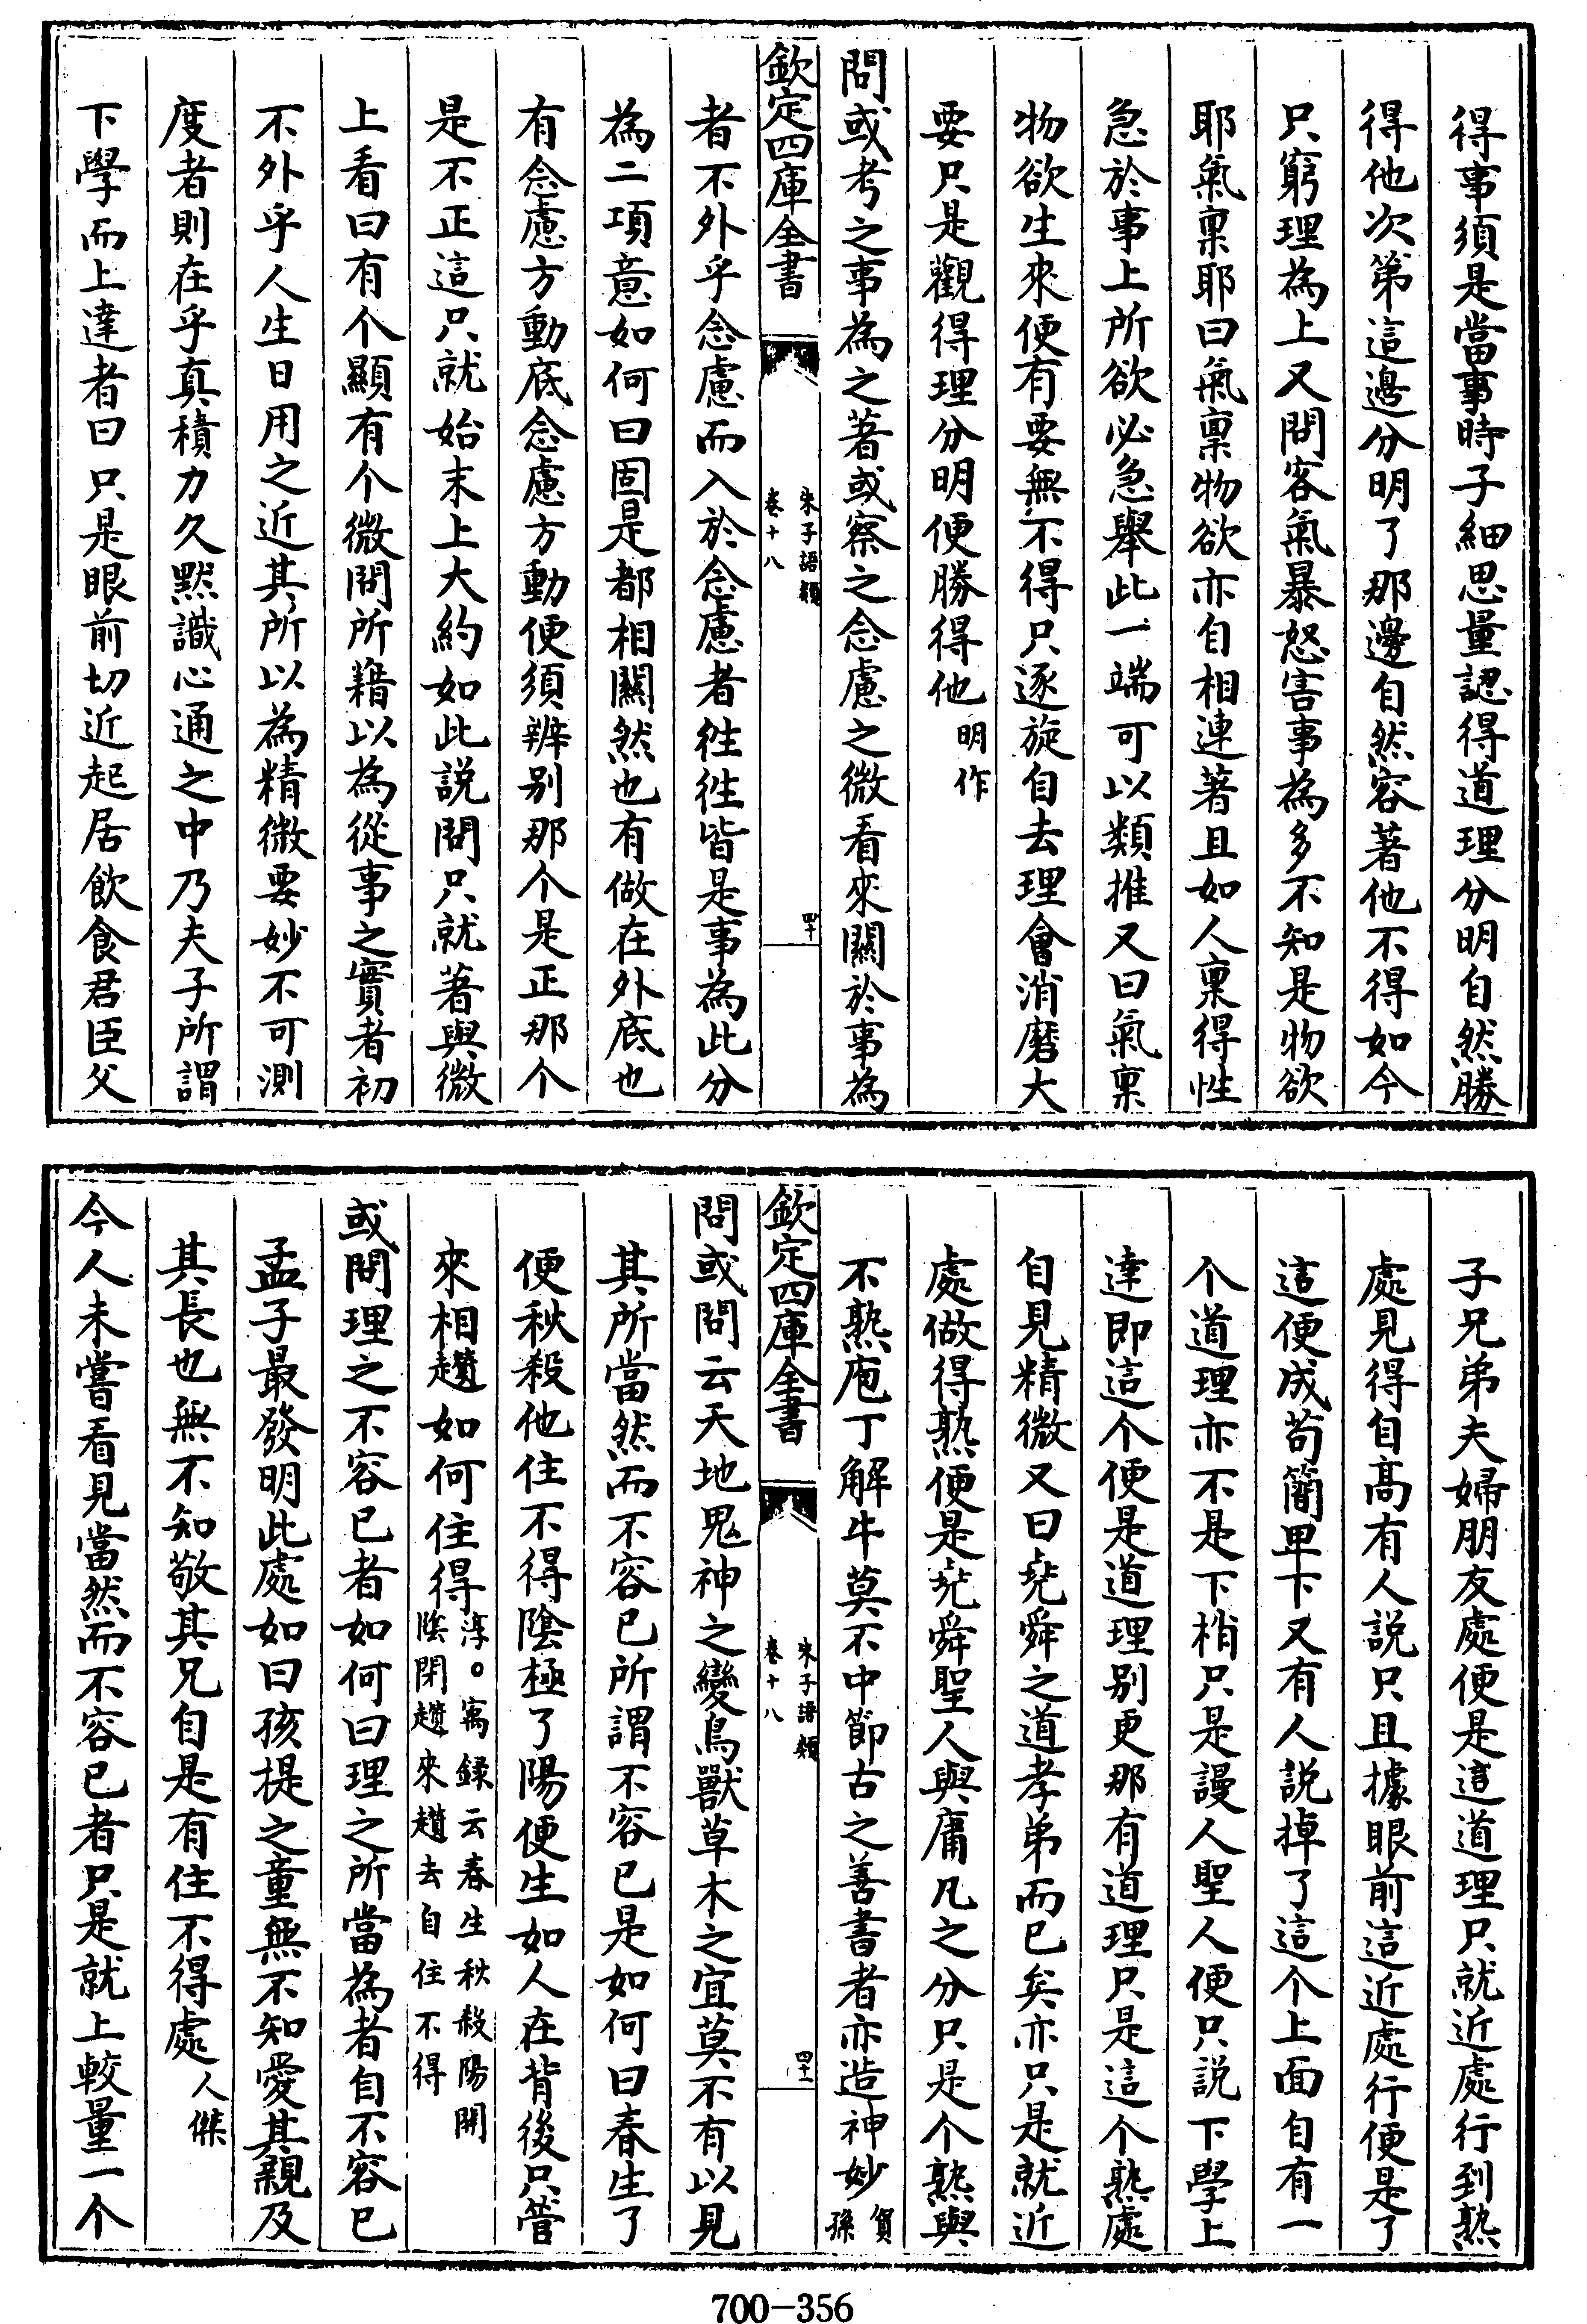 得事須是當事時子細思量認得道理分明自然勝
得他次第這邊分明了那邊自然容著他不得如今
只窮理為上又問客氣暴怒害事為多不知是物欲
耶氣稟耶曰氣稟物欲亦自相連著且如人稟得性
急於事上所欲必急舉此一端可以類推又曰氣稟
物欲生來便有要無不得只逐旋自去理會消磨大
要只是觀得理分明便勝得他明作
問或考之事為之著或察之念慮之微看來關於事為
欽定四庫全書
朱子語類
卷十八
四十
者不外乎念慮而入於念慮者往往皆是事為此分
為二項意如何曰固是都相關然也有做在外底也
有念慮方動底念慮方動便須辨别那个是正那个
是不正這只就始末上大約如此説問只就著與微
上看曰有个顯有个微問所藉以為從事之實者初
不外乎人生日用之近其所以為精微要妙不可測
度者則在乎真積力久黙識心通之中乃夫子所謂
下學而上達者曰只是眼前切近起居飲食君臣父
子兄弟夫婦朋友處便是這道理只就近處行到熟
處見得自髙有人説只且據眼前這近處行便是了
這便成苟簡卑下又有人説掉了這个上面自有一
个道理亦不是下梢只是謾人聖人便只説下學上
達即這个便是道理别更那有道理只是這个熟處
自見精微又曰堯舜之道孝弟而已矣亦只是就近
處做得熟便是堯舜聖人與庸凡之分只是个熟與
不熟庖丁解牛莫不中節古之善書者亦造神妙賀孫
欽定四庫全書
朱子語類
卷十八
四十一
問或問云天地鬼神之變鳥獸草木之宜莫不有以見
其所當然而不容已所謂不容已是如何曰春生了
便秋殺他住不得陰極了陽便生如人在背後只管
來相趲如何住得淳。㝢録云春生秋殺陽開
陰閉趲來趲去自住不得
或問理之不容已者如何曰理之所當為者自不容已
孟子最發明此處如曰孩提之童無不知愛其親及
其長也無不知敬其兄自是有住不得處人傑
今人未嘗看見當然而不容已者只是就上較量一个
700-356